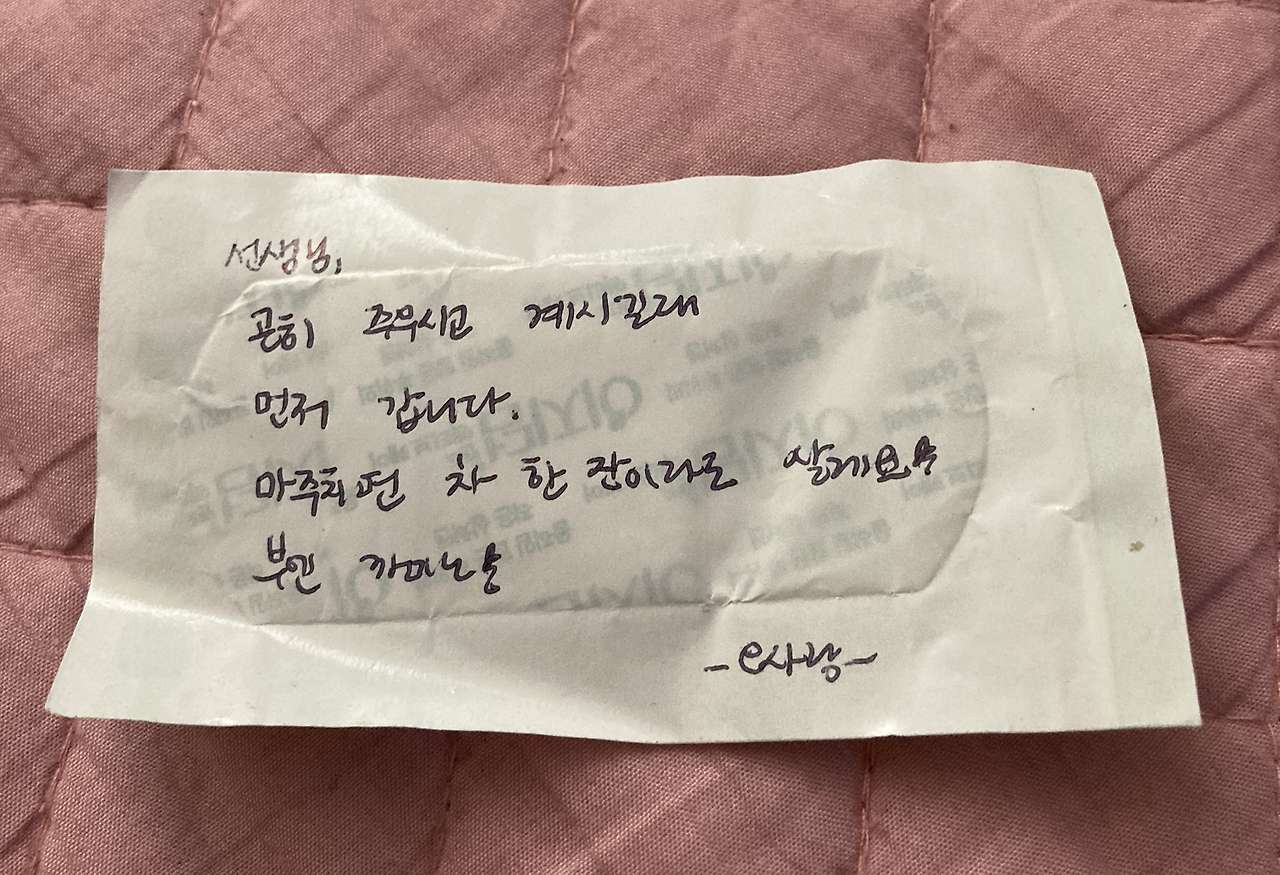 선생님,
곤히 주무시고 계시길래
먼저 갑니다.
마주치면 차 한 잔이라도 살게요
부엔 까미노
-e사랑-